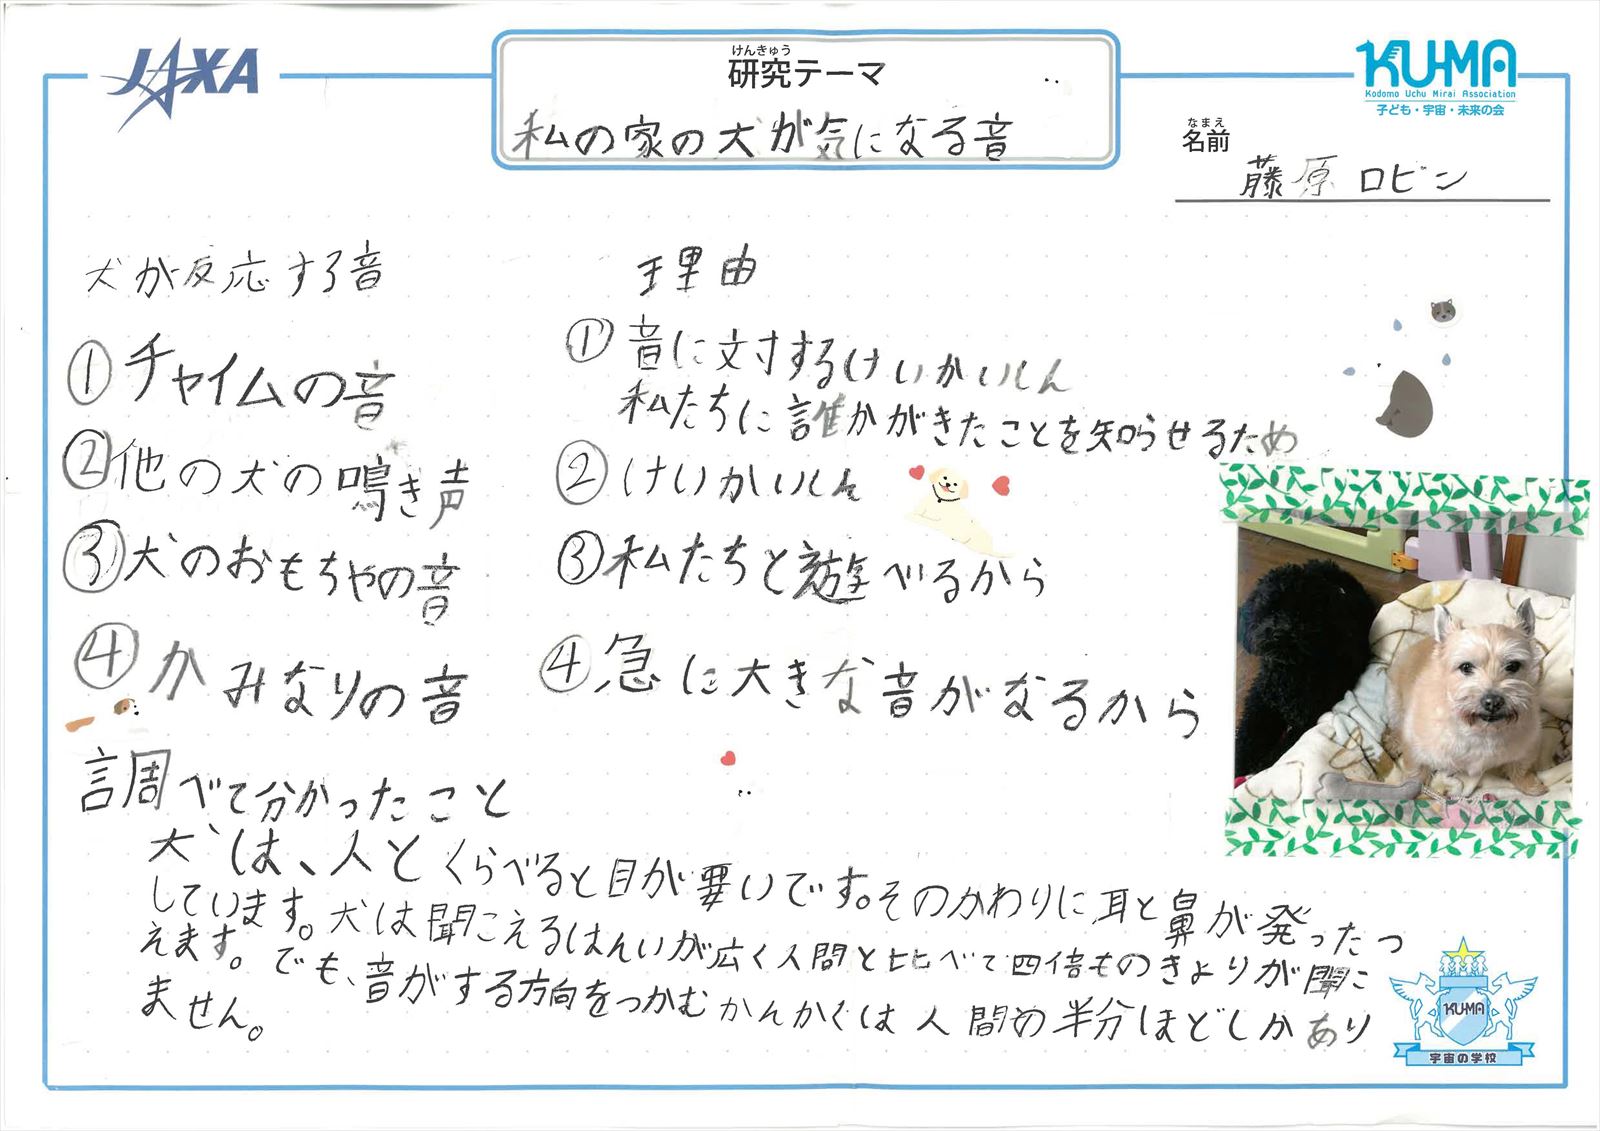 JAXA
けんきゅう
研究テーマ
私の家の犬が気になる音
KU-MA
Kodomo Uchu Mirai Association
子ども・宇宙・未来の会
なまえ
名前
藤原 ロビン
犬が反応する音
①チャイムの音
②他の犬の鳴き声
③犬のおもちゃの音
④かみなりの音
理由
①音に対するけいかいしん
私たちに誰かがきたことを知らせるため
②けいかいしん
③私たちと遊べるから
④急に大きな音がなるから
調べて分かったこと
犬は、人とくらべると目が悪いです。そのかわりに耳と鼻が発ったつ
しています。犬は聞こえるはんいが広く人間と比べて四倍ものきょりが聞こ
えます。でも、音がする方向をつかむかんかくは人間の半分ほどしかあり
ません。
KU-MA
宇宙の学校